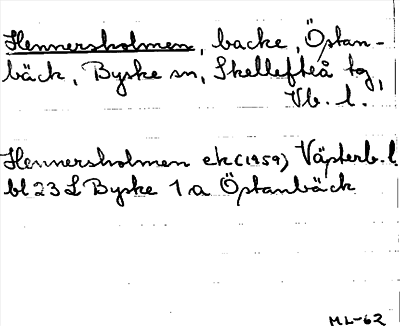 Hennersholmen, backe, Östan-
bäck, Byske sn, Skellefteå tg,
Vb. l.
Hennersholmen ek (1959) Västerb. l
bl 23 L Byske 1 a Östanbäck
ML-62